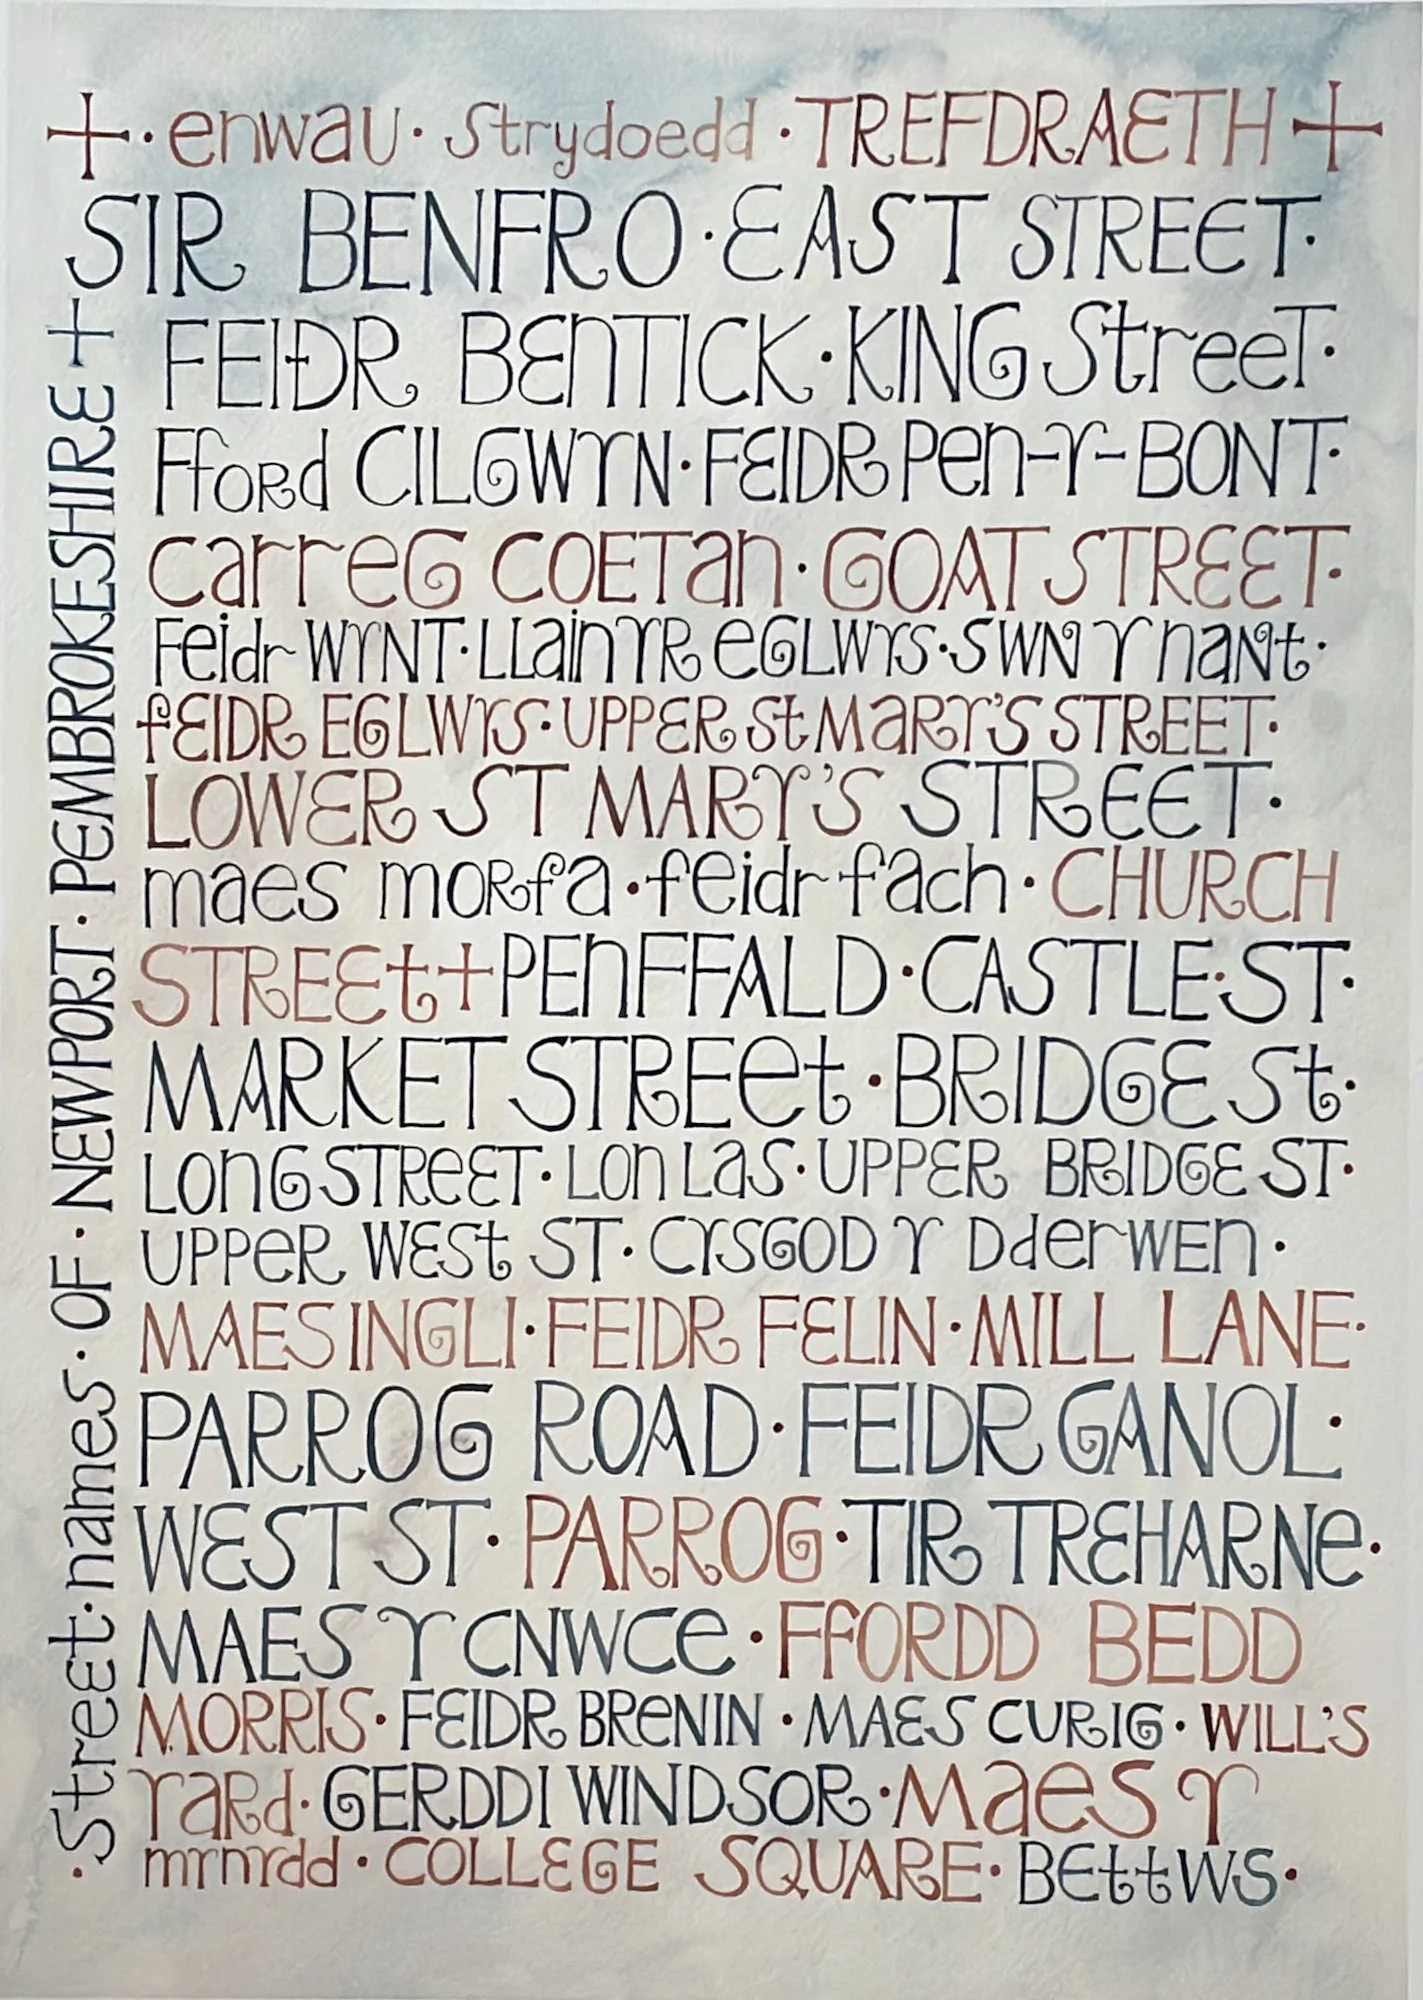 + · enwau · Strydoedd · TREFDRAETH +
SIR BENFRO · EAST STREET ·
FEIDR BEnTICK · KING StreeT ·
FfORd CILGWYN · FEIDR Pen-Y-BONT ·
CarreG COETan · GOAT STREET ·
Feidr WYNT · LLainYR eGLWYS · SWN Y naNt ·
fEIDR EGLWYS · UPPER St MaRY'S STREET ·
LOWER ST MARY'S STREET ·
maes moRfa · feidr fach · CHURCH
STREEt + PEnFFALD · CASTLE · ST ·
MARKET STREet · BRIDGE St ·
LonG STReET · Lon Las · UPPER BRIDGE ST ·
UPPeR WESt ST · CYSGOD Y DderWEn ·
MAES INGLI · FEIDR FELIN · MILL LANE ·
PARROG ROAD · FEIDR GANOL ·
WEST ST · PARROG · TIR TREHARNe ·
MAES Y CNWCe · FfORDD BEDD
MORRIS · FEIDR BReNIN · MAES CURIG · WILL'S
YaRd · GERDDI WINDSOR · MaeS Y
mYnYdd · COLLEGE SQUARE · BEttWS ·
· Street · names · OF · NEWPORT · PEMBROKESHIRE +